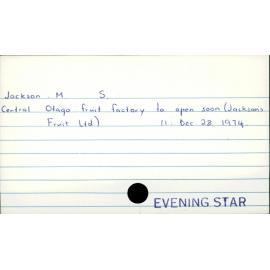 Jackson. M S.
Central Otago fruit factory to open soon (Jackson's
Fruit Ltd) 11. Dec 28 1974.
EVENING STAR